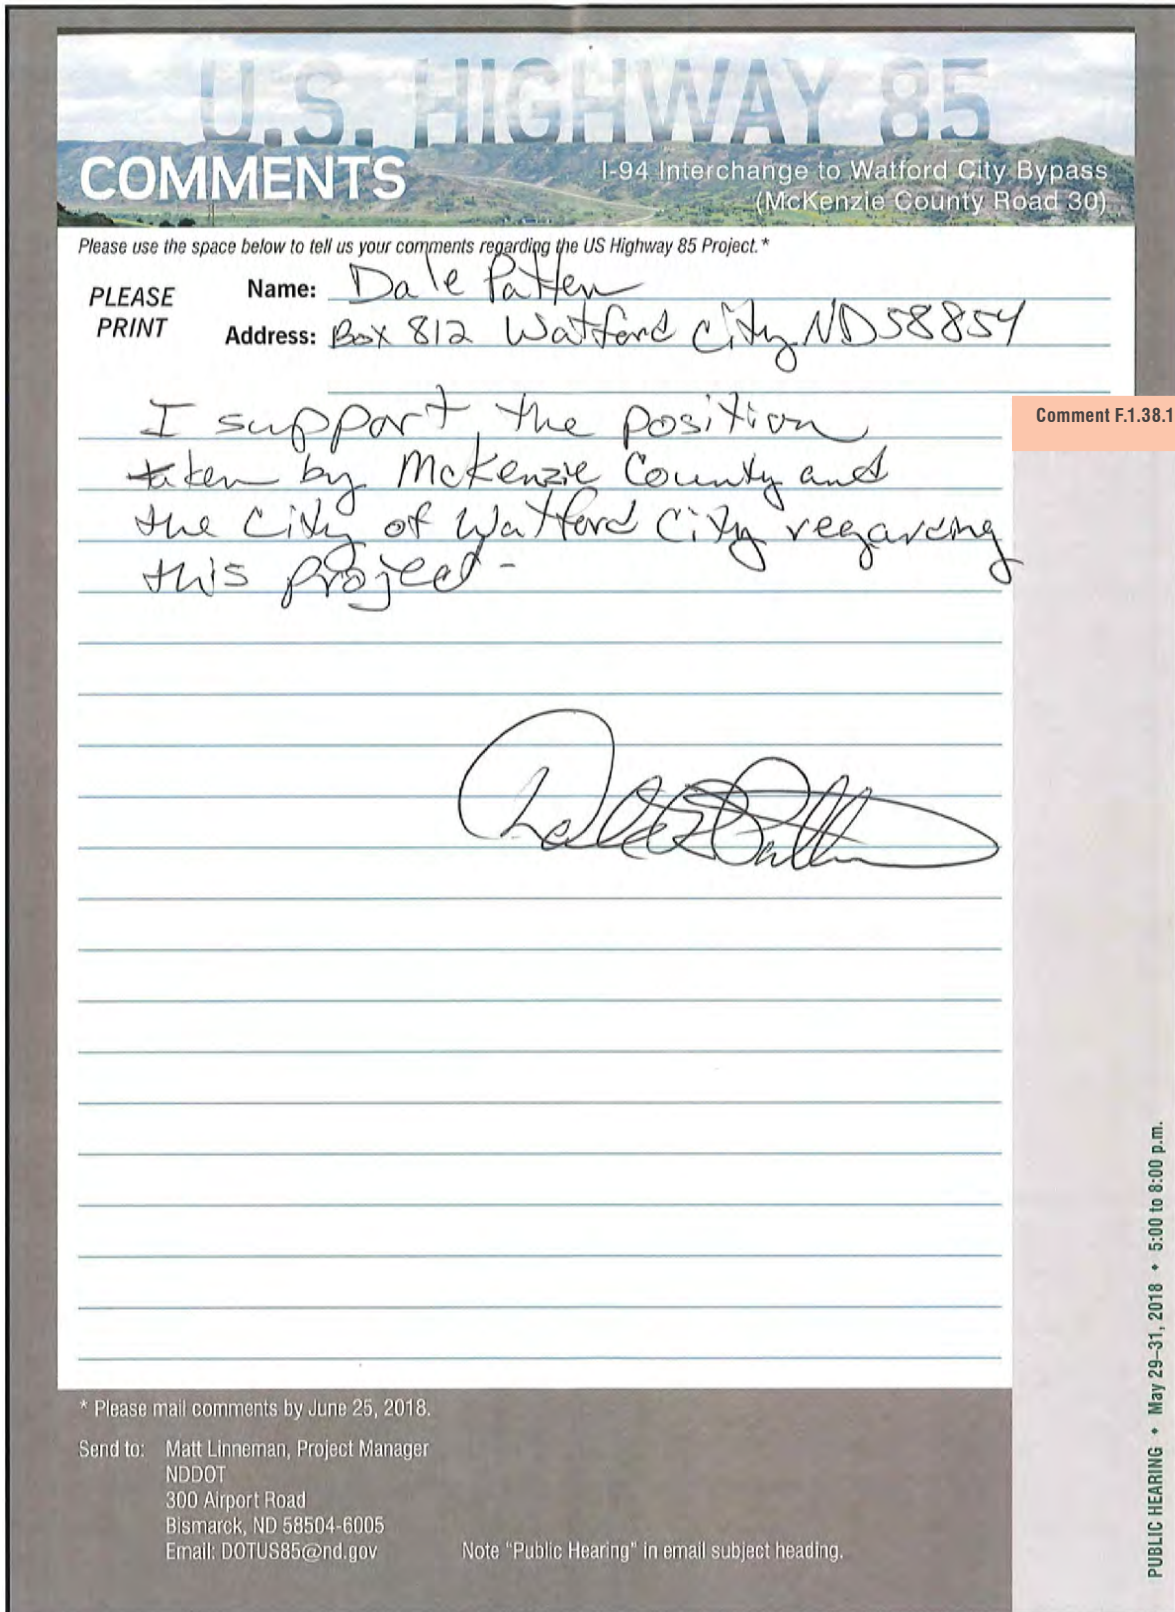 U.S. HIGHWAY 85
COMMENTS
I-94 Interchange to Watford City Bypass
(McKenzie County Road 30)
Please use the space below to tell us your comments regarding the US Highway 85 Project.*
PLEASE PRINT
Name: Dale Patten
Address: Box 812 Watford City ND 58854
I support the position
taken by McKenzie County and
the City of Watford City regarding
this project.
Comment F.1.38.1
Dale Patten
* Please mail comments by June 25, 2018.
Send to: Matt Linneman, Project Manager
NDDOT
300 Airport Road
Bismarck, ND 58504-6005
Email: DOTUS85@nd.gov
Note "Public Hearing" in email subject heading.
PUBLIC HEARING • May 29–31, 2018 • 5:00 to 8:00 p.m.